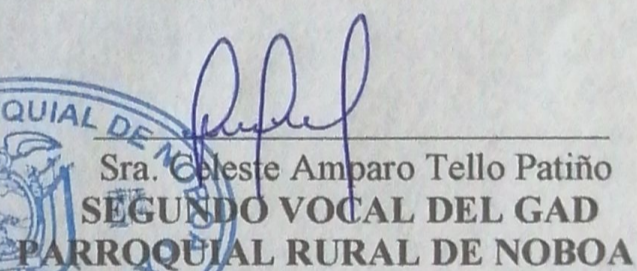 QUIAL DE NOBOA
Sra. Celeste Amparo Tello Patiño
SEGUNDO VOCAL DEL GAD
PARROQUIAL RURAL DE NOBOA